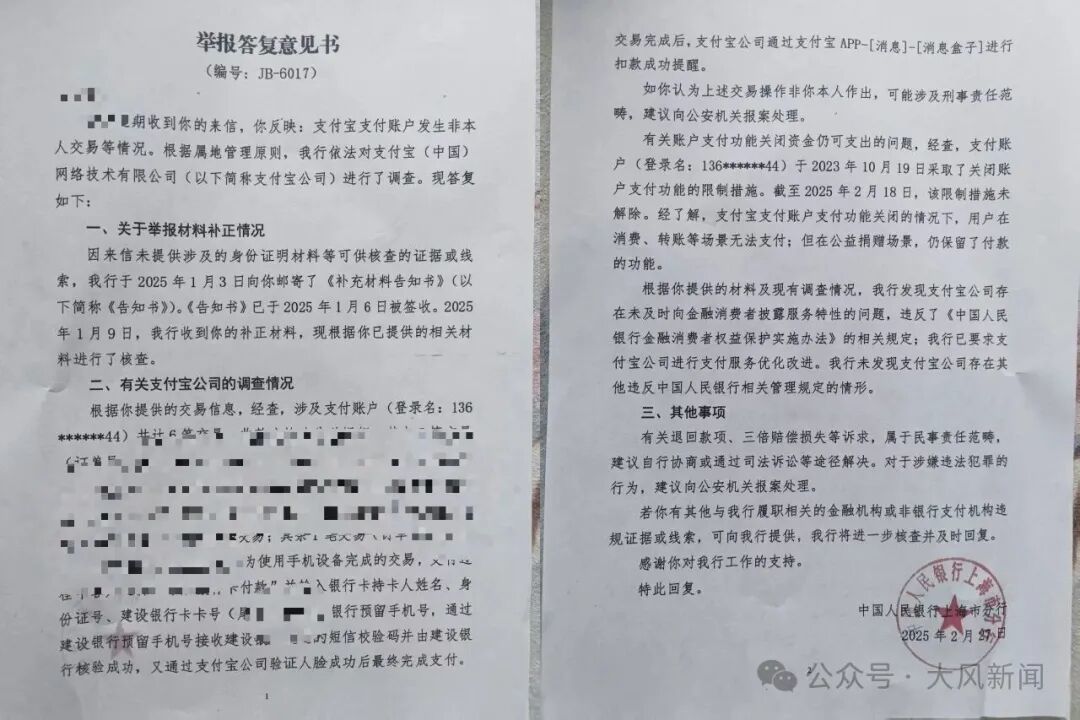 举报答复意见书
（编号：JB-6017）
期收到你的来信，你反映：支付宝支付账户发生非本
人交易等情况。根据属地管理原则，我行依法对支付宝（中国）
网络技术有限公司（以下简称支付宝公司）进行了调查。现答复
如下：
一、关于举报材料补正情况
因来信未提供涉及的身份证明材料等可供核查的证据或线
索，我行于 2025 年 1 月 3 日向你邮寄了《补充材料告知书》（以
下简称《告知书》）。《告知书》已于 2025 年 1 月 6 日被签收。2025
年 1 月 9 日，我行收到你的补正材料，现根据你已提供的相关材
料进行了核查。
二、有关支付宝公司的调查情况
根据你提供的交易信息，经查，涉及支付账户（登录名：136
******44）共计 6 笔交易
为使用手机设备完成的交易，
付款”并输入银行卡持卡人姓名、身
份证号、建设银行卡卡号（尾 银行预留手机号，通过
建设银行预留手机号接收建设银 的短信校验码并由建设银
行核验成功，又通过支付宝公司验证人脸成功后最终完成支付。
1
交易完成后，支付宝公司通过支付宝 APP-[消息]-[消息盒子]进行
扣款成功提醒。
如你认为上述交易操作非你本人作出，可能涉及刑事责任范
畴，建议向公安机关报案处理。
有关账户支付功能关闭资金仍可支出的问题，经查，支付账
户（登录名：136******44）于 2023 年 10 月 19 日采取了关闭账
户支付功能的限制措施。截至 2025 年 2 月 18 日，该限制措施未
解除。经了解，支付宝支付账户支付功能关闭的情况下，用户在
消费、转账等场景无法支付；但在公益捐赠场景，仍保留了付款
的功能。
根据你提供的材料及现有调查情况，我行发现支付宝公司存
在未及时向金融消费者披露服务特性的问题，违反了《中国人民
银行金融消费者权益保护实施办法》的相关规定；我行已要求支
付宝公司进行支付服务优化改进。我行未发现支付宝公司存在其
他违反中国人民银行相关管理规定的情形。
三、其他事项
有关退回款项、三倍赔偿损失等诉求，属于民事责任范畴，
建议自行协商或通过司法诉讼等途径解决。对于涉嫌违法犯罪的
行为，建议向公安机关报案处理。
若你有其他与我行履职相关的金融机构或非银行支付机构违
规证据或线索，可向我行提供，我行将进一步核查并及时回复。
感谢你对我行工作的支持。
特此回复。
中国人民银行上海市分行
2025 年 2 月 27 日
公众号 · 大风新闻